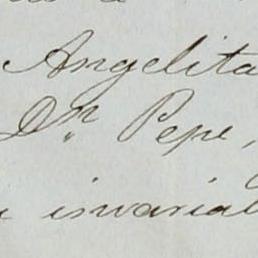 Angelita
Dn Pepe,
invariab